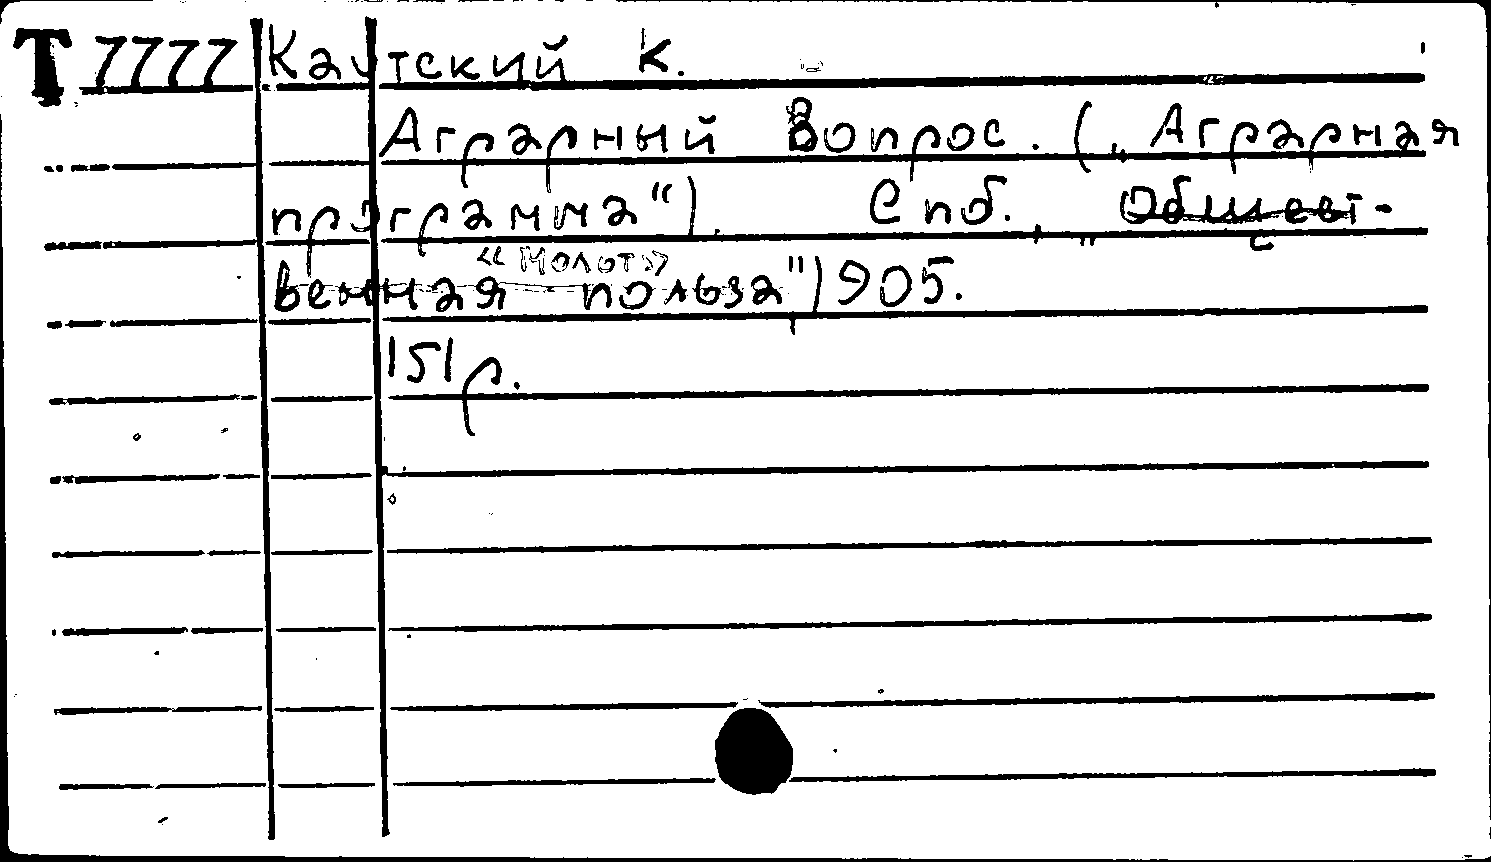 Т 7777 Каутский К.
Аграрный Вопрос. („Аграрная
программа“). Спб., „Общест-
«Молот»
венная польза", 1905.
151 p.